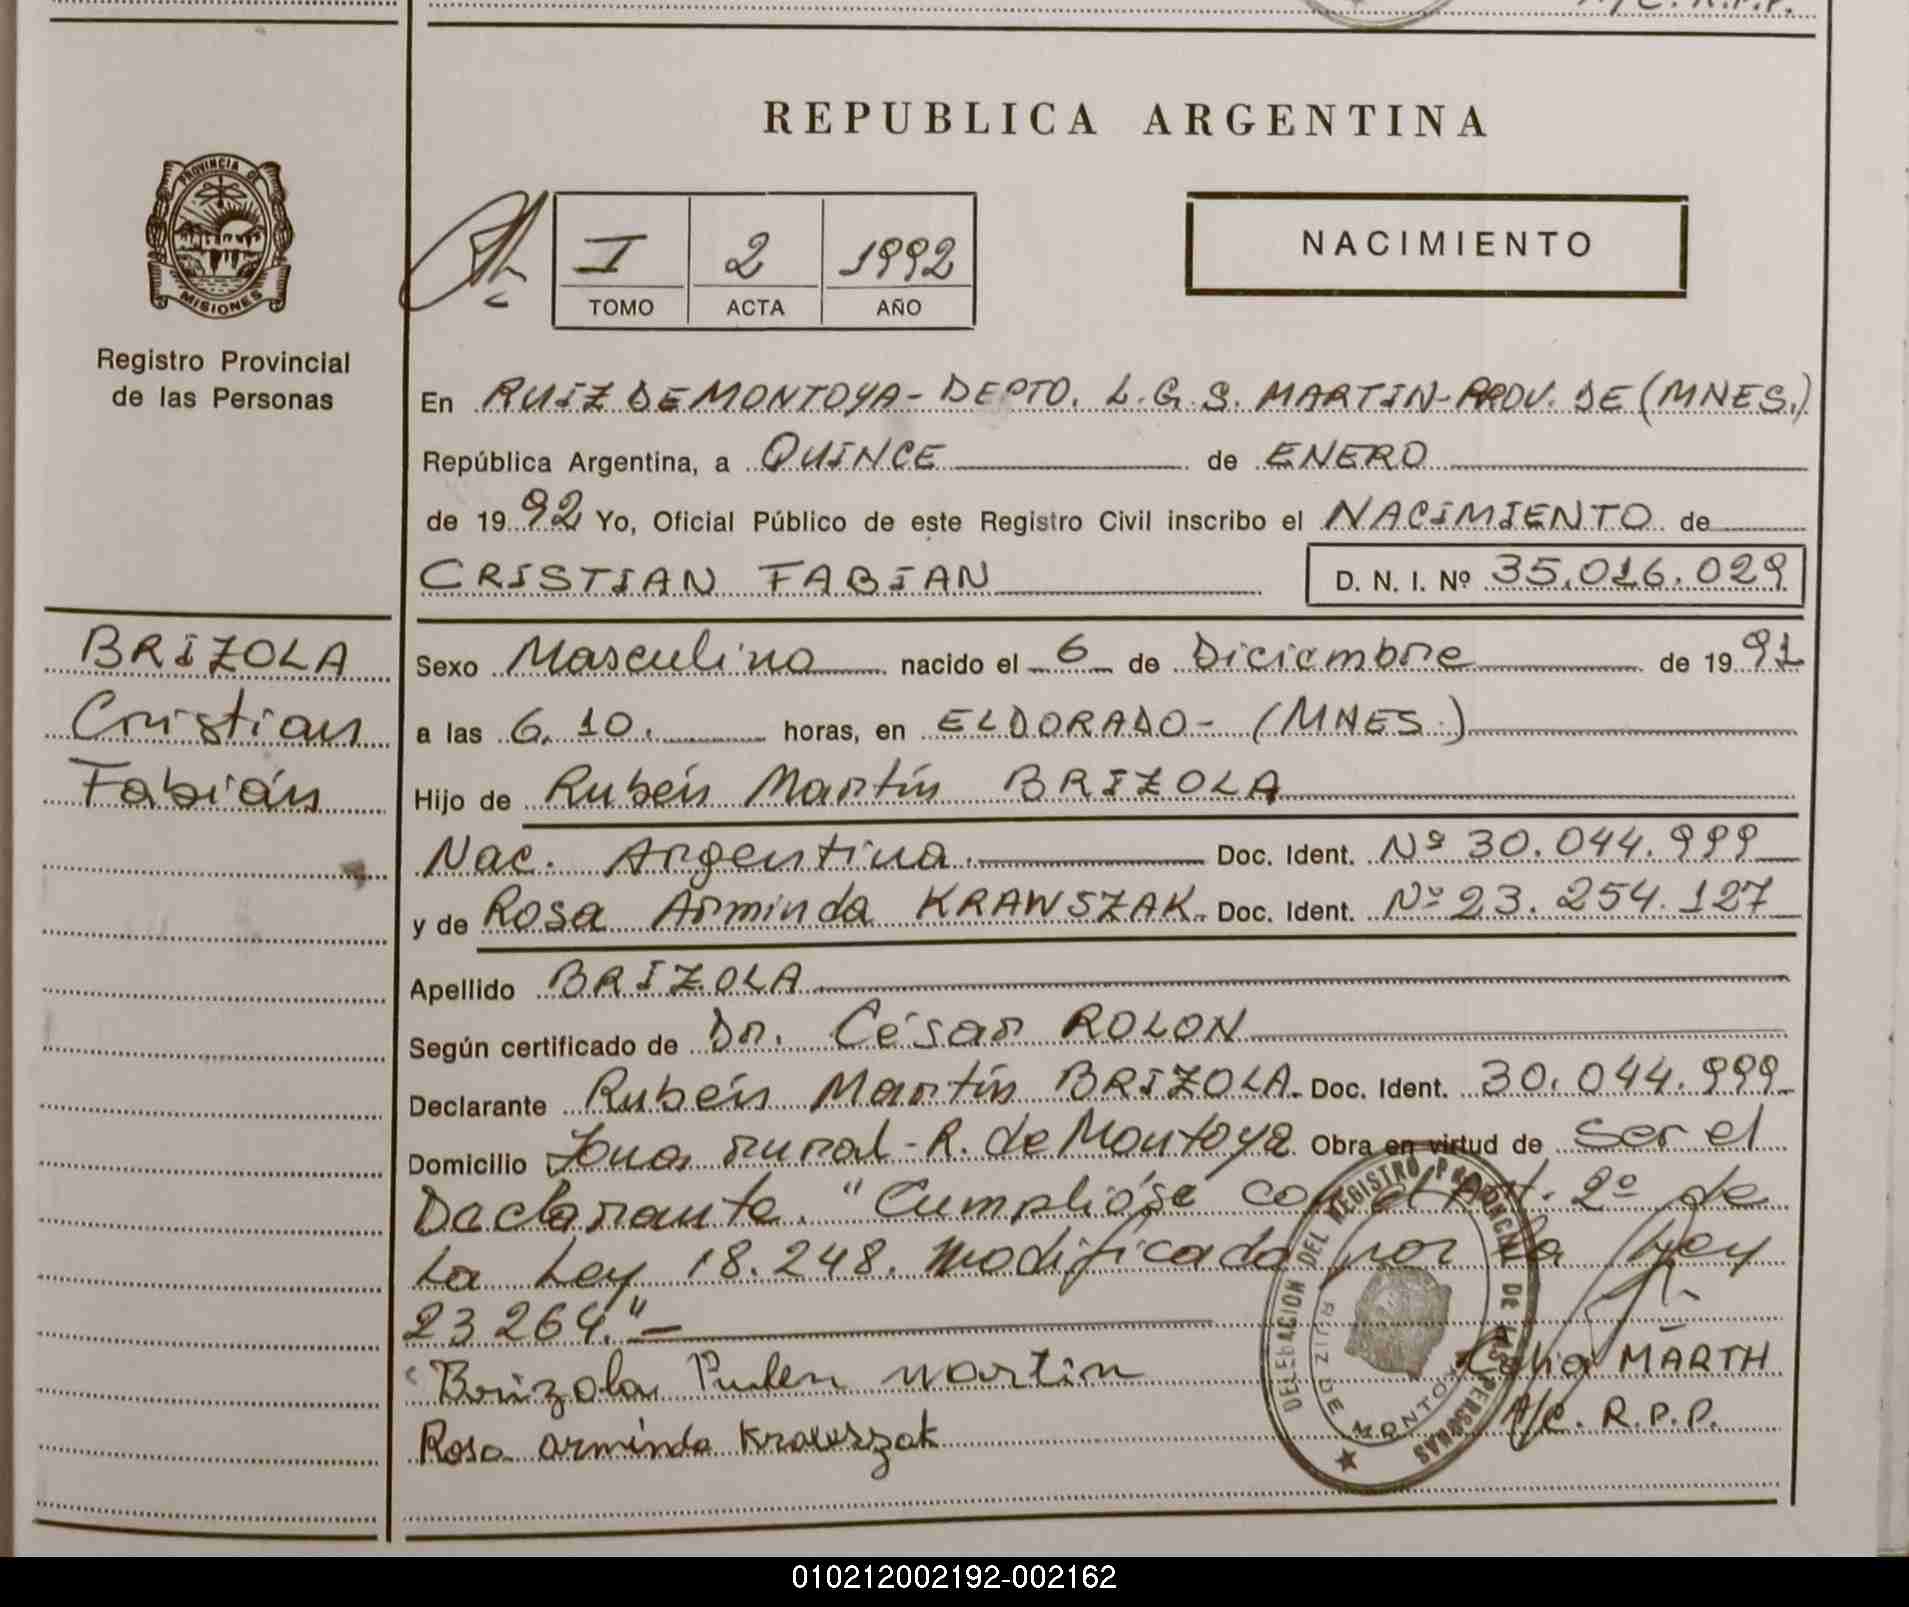 A/C. R.P.P.
REPUBLICA ARGENTINA
PROVINCIA DE
MISIONES
Registro Provincial
de las Personas
I 2 1992
TOMO ACTA AÑO
NACIMIENTO
En RUIZ DE MONTOYA - DEPTO. L.G.S. MARTIN - PROV. DE (MNES.)
República Argentina, a QUINCE de ENERO
de 1992 Yo, Oficial Público de este Registro Civil inscribo el NACIMIENTO de
CRISTIAN FABIAN D. N. I. Nº 35.016.029
BRIZOLA
Cristian
Fabián
Sexo Masculino nacido el 6 de Diciembre de 1991
a las 6.10. horas, en ELDORADO - (MNES.)
Hijo de Rubén Martín BRIZOLA
Nac. Argentina. Doc. Ident. Nº 30.044.999
y de Rosa Arminda KRAWSZAK Doc. Ident. Nº 23.254.127
Apellido BRIZOLA
Según certificado de Dr. César ROLON
Declarante Rubén Martín BRIZOLA Doc. Ident. 30.044.999
Domicilio Zona rural - R. de Montoya Obra en virtud de Ser el
Declarante. "Cumplióse con el Art. 2º de
La Ley 18.248. modificada por la Ley
23264."-
Brizola Ruben martin
Rosa arminda Krawszak
Celia MARTH
A/C. R.P.P.
DELEGACION DEL REGISTRO PROVINCIAL DE LAS PERSONAS
DE RUIZ DE MONTOYA
010212002192-002162